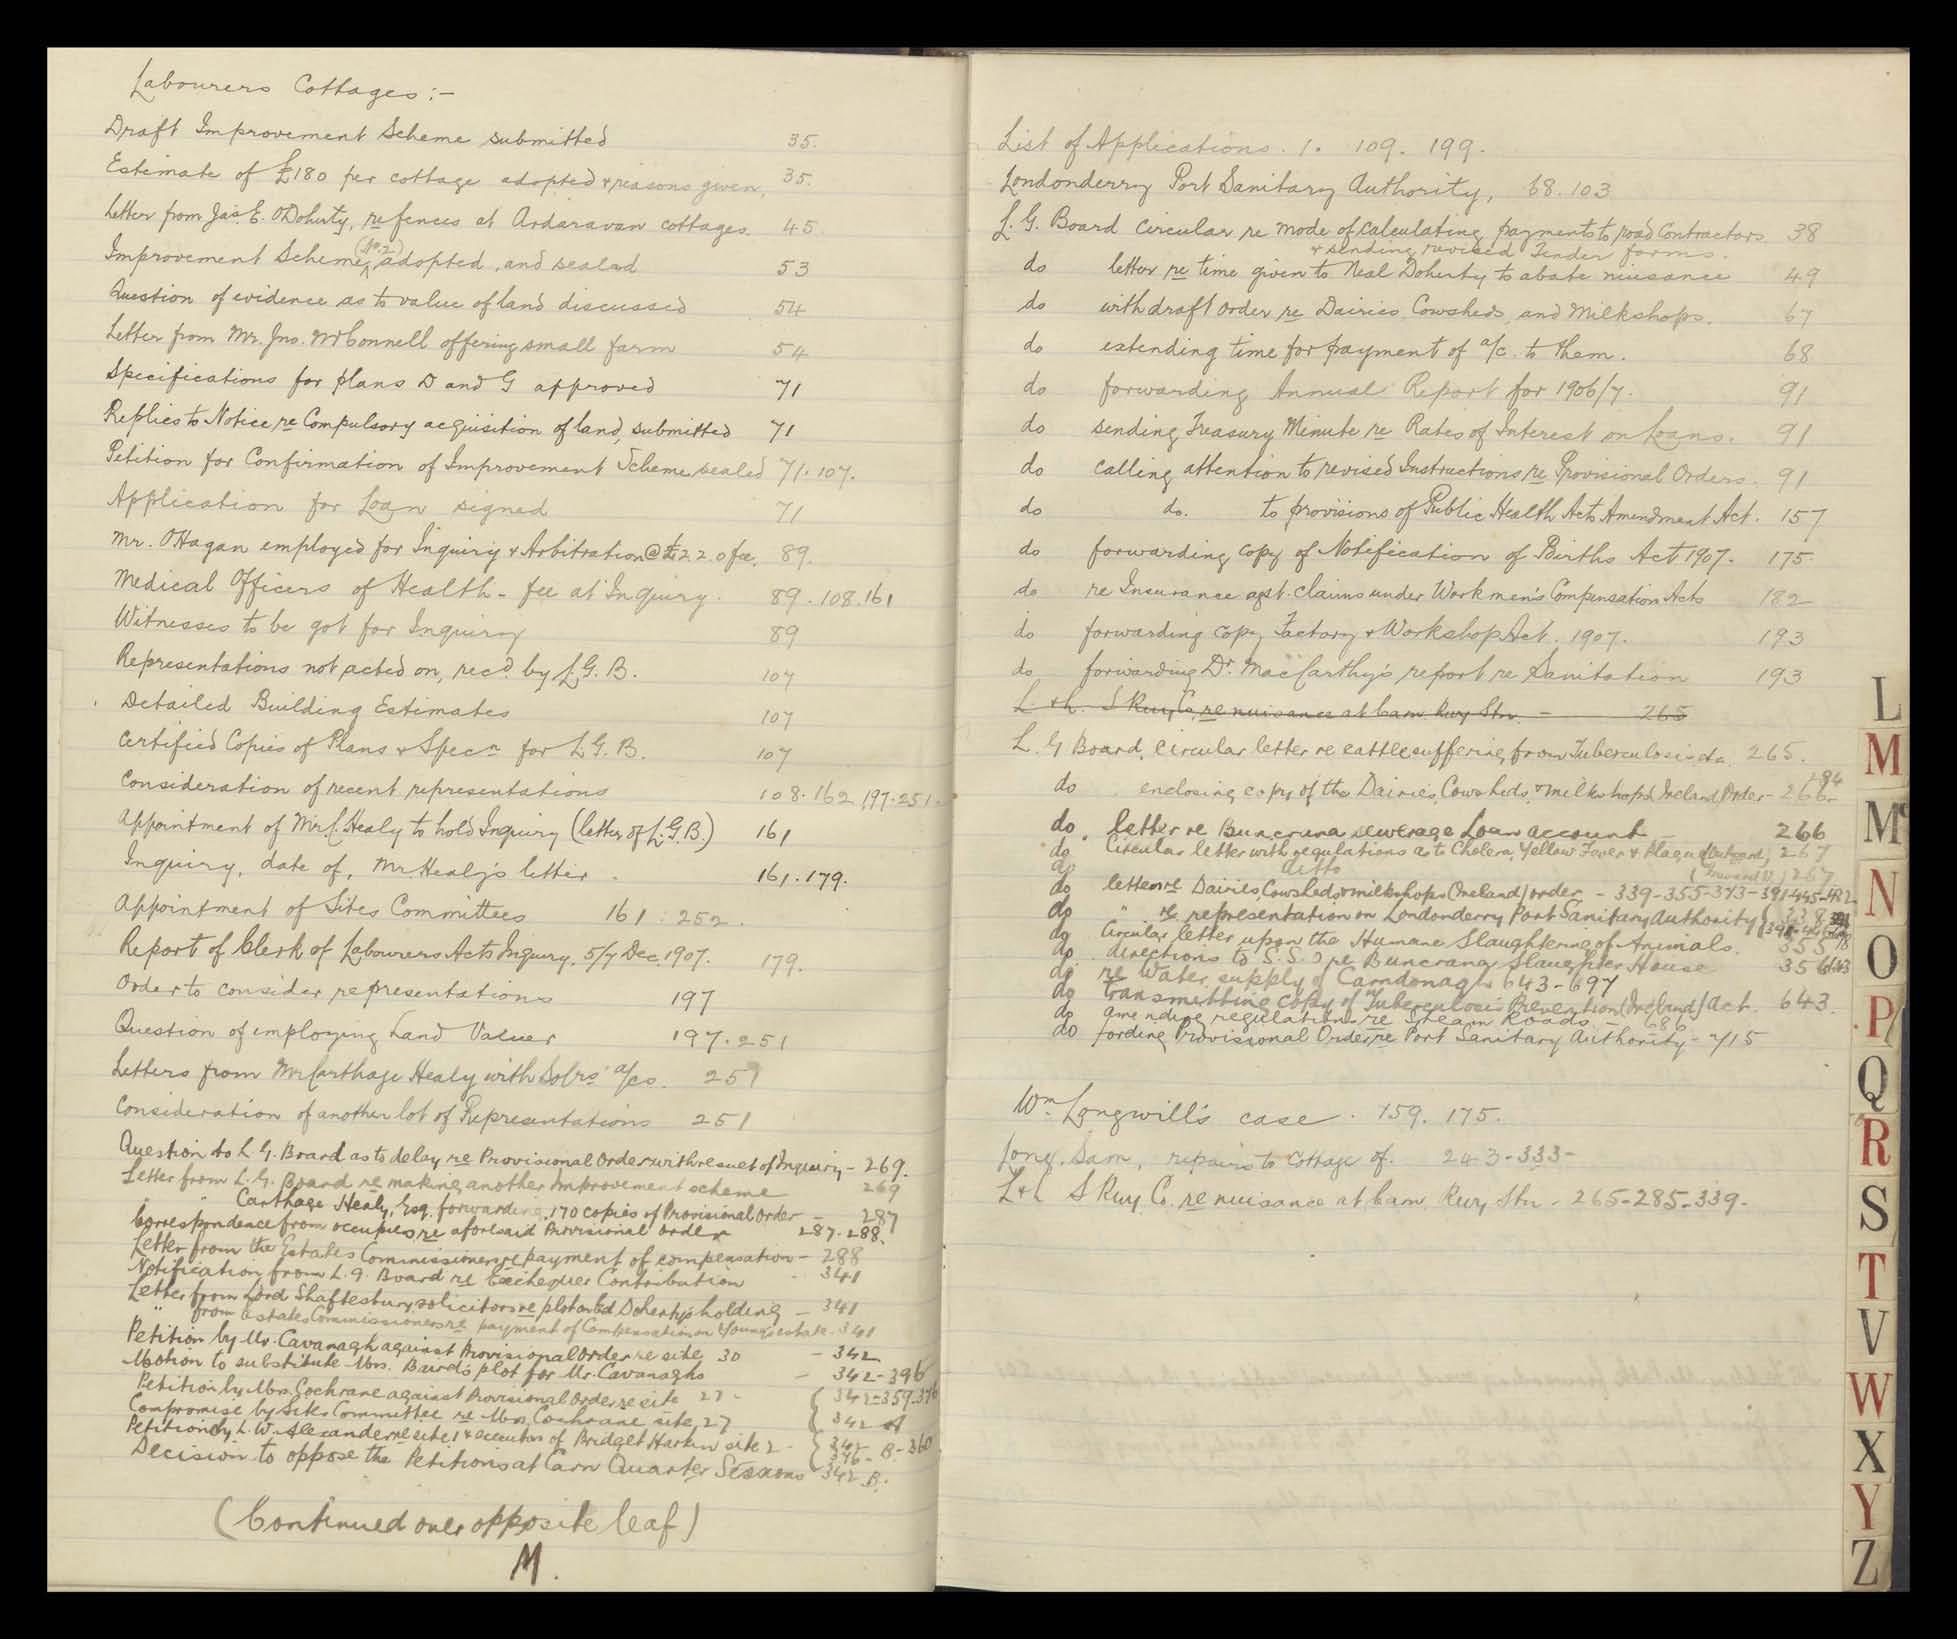 Labourers Cottages :-
Draft Improvement Scheme submitted 35.
Estimate of £180 per cottage adopted & reasons given, 35.
Letter from Jas. E. O'Doherty, re fences at Ardaravan cottages. 45
(No. 2)
Improvement Scheme, adopted, and sealed 53
Question of evidence as to value of land discussed 54
Letter from Mr. Jno. McConnell offering small farm 54
Specifications for plans D and G approved 71
Replies to Notice re Compulsory acquisition of land, submitted 71
Petition for Confirmation of Improvement Scheme sealed 71. 107.
Application for Loan signed 71
Mr. O'Hagan employed for Inquiry & Arbitration @ £2 2. 0 fee. 89.
Medical Officers of Health - fee at Inquiry. 89. 108. 161
Witnesses to be got for Inquiry 89
Representations not acted on, recd. by L.G.B. 107
Detailed Building Estimates 107
Certified Copies of Plans & Specn for L.G.B. 107
Consideration of recent representations 108. 162. 197. 251.
Appointment of Mr C. Healy to hold Inquiry (letter of L.G.B.) 161
Inquiry, date of, Mr Healy's letter. 161. 179.
Appointment of Sites Committees 161. 252.
Report of Clerk of Labourers Acts Inquiry, 5/7 Dec. 1907. 179.
Order to consider representations 197
Question of employing Land Valuer 197. 251
Letters from Mr Carthage Healy with Solrs' a/cs. 251
Consideration of another lot of Representations 251
Question to L. G. Board as to delay re Provisional Order with result of Inquiry - 269.
Letter from L. G. Board re making another Improvement scheme 269
" " Carthage Healy, Esq. forwarding 170 copies of Provisional Order - 287
Correspondence from occupiers re aforesaid Provisional Order 287-288.
Letter from the Estates Commissioners re payment of compensation - 288
Notification from L. G. Board re Exchequer Contribution - 341
Letter from Lord Shaftesbury solicitors re plot on Doherty's holding - 341
" from Estates Commissioners re payment of Compensation on Young estate - 341
Petition by Mr. Cavanagh against Provisional Order re site 30 - 342
Motion to substitute Mrs. Baird's plot for Mr. Cavanaghs - 342-396
Petition by Mrs. Cochrane against Provisional Order re site 27 - 342-359-376
Compromise by Sites Committee re Mrs Cochrane site 27 342 A
Petition by L. W. Alexander re site 1 & executors of Bridget Harkin site 2 - 342- B-360
346-
Decision to oppose the Petitions at Carn Quarter Sessions 342 B.
(Continued over opposite leaf)
M.
List of Applications. 1. 109. 199.
Londonderry Port Sanitary Authority, 68. 103
L. G. Board Circular re mode of calculating payments to road Contractors 38
& sending revised Tender forms.
do letter re time given to Neal Doherty to abate nuisance 49
do with draft order re Dairies, Cowsheds, and Milkshops. 67
do extending time for payment of a/c. to them. 68
do forwarding Annual Report for 1906/7. 91
do sending Treasury Minute re Rates of Interest on Loans. 91
do calling attention to revised Instructions re Provisional Orders. 91
do do. to provisions of Public Health Acts Amendment Act. 157
do forwarding copy of Notification of Births Act 1907. 175.
do re Insurance agst. claims under Workmen's Compensation Acts 182
do forwarding copy Factory & Workshop Act. 1907. 193
do forwarding Dr. MacCarthy's report re Sanitation 193
L. & L. S Rwy Co, re nuisance at Carn Rwy Stn. - 265
L. G Board, Circular letter re cattle suffering from Tuberculosis &c. 265.
284
do enclosing copy of the Dairies, Cowsheds, & milkshops Ireland Order - 266-
do. letter re Buncrana sewerage Loan account - 266
do Circular letter with regulations as to Cholera, Yellow Fever & Plague (Outward) 267
do ditto (Inward) 267
do letters re Dairies, Cowsheds & milkshops (Ireland) order - 339-355-373-391-445-482
do " re representation on Londonderry Port Sanitary Authority 338
do Circular letter upon the Humane Slaughtering of Animals. 355
do directions to S.S.O re Buncrana Slaughter House 356
do re Water supply of Carndonagh 643-697
do transmitting copy of Tuberculosis Prevention (Ireland) Act. 643.
do amending regulations re Steam Roads - 686
do fording Provisional Order re Port Sanitary Authority - 715
Wm. Longwill's case. 159. 175.
Long, Sam, repairs to Cottage of. 243-333-
L & L S Rwy. Co. re nuisance at Carn Rwy Stn - 265-285-339-
L
M
Mc
N
O
P
Q
R
S
T
V
W
X
Y
Z